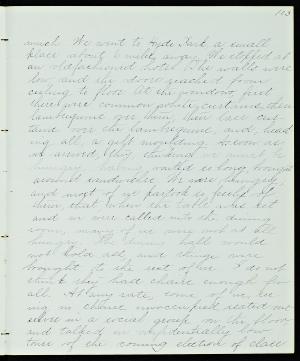 103
much. We went to Hyde Park, a small
place about 6 miles away. We stopped at
an old fashioned hotel. The walls were
low, and the doors reached from
ceiling to floor. At the windows, first
there were common white curtains, then
lambrequins over them, then lace cur-
tains over the lambrequins, and, head-
ing all, a gilt moulding. As soon as
we arrived, they
hungry having waited so long, brought
around eatables. We were hungry
and most of us partook so freely of
them, that when the table was set
and we were called into the dining
room, many of us were not at all
hungry. The dining hall would
not hold all, and things were
brought to the rest of us. I do not
think they had chairs enough for
all. At any rate, some of us, see-
ing no chance unoccupied seated our-
selves in a social group on the floor
and talked in confidentially low
tones of the coming election of class